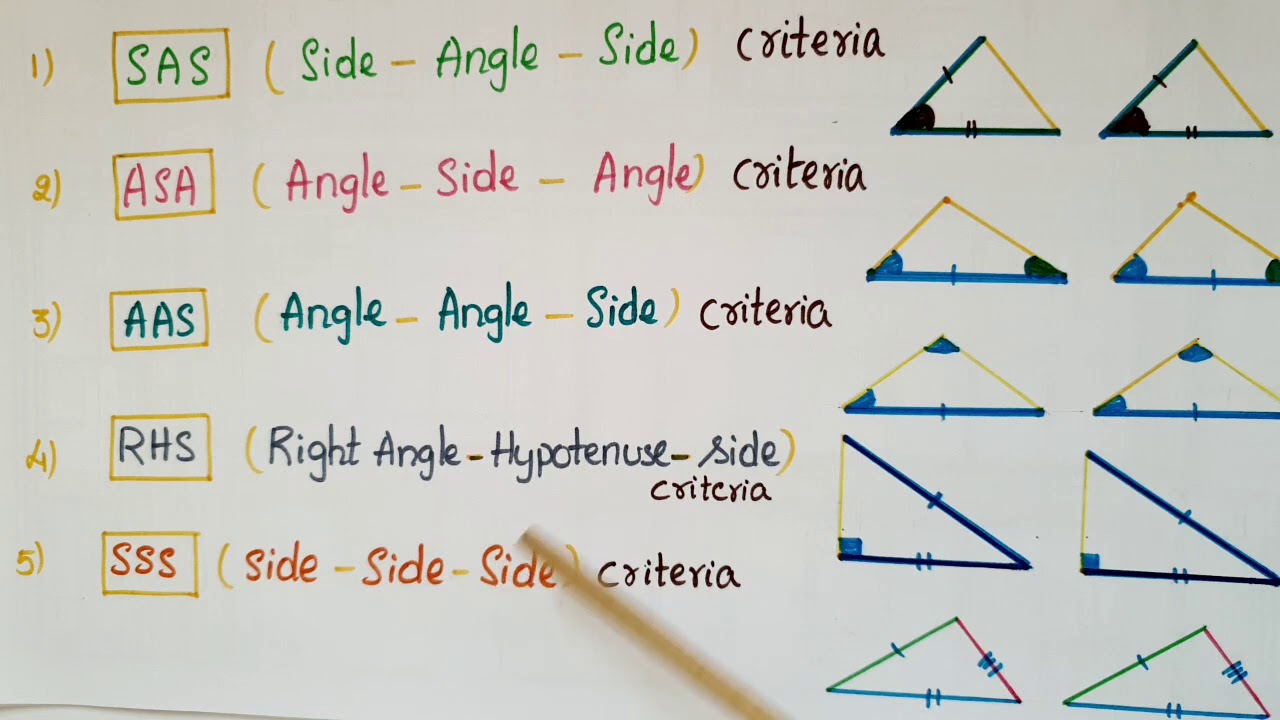 1) SAS ( Side - Angle - Side) criteria
2) ASA ( Angle - Side - Angle) criteria
3) AAS ( Angle - Angle - Side) criteria
4) RHS ( Right Angle - Hypotenuse - side)
criteria
5) SSS ( Side - Side - Side) criteria